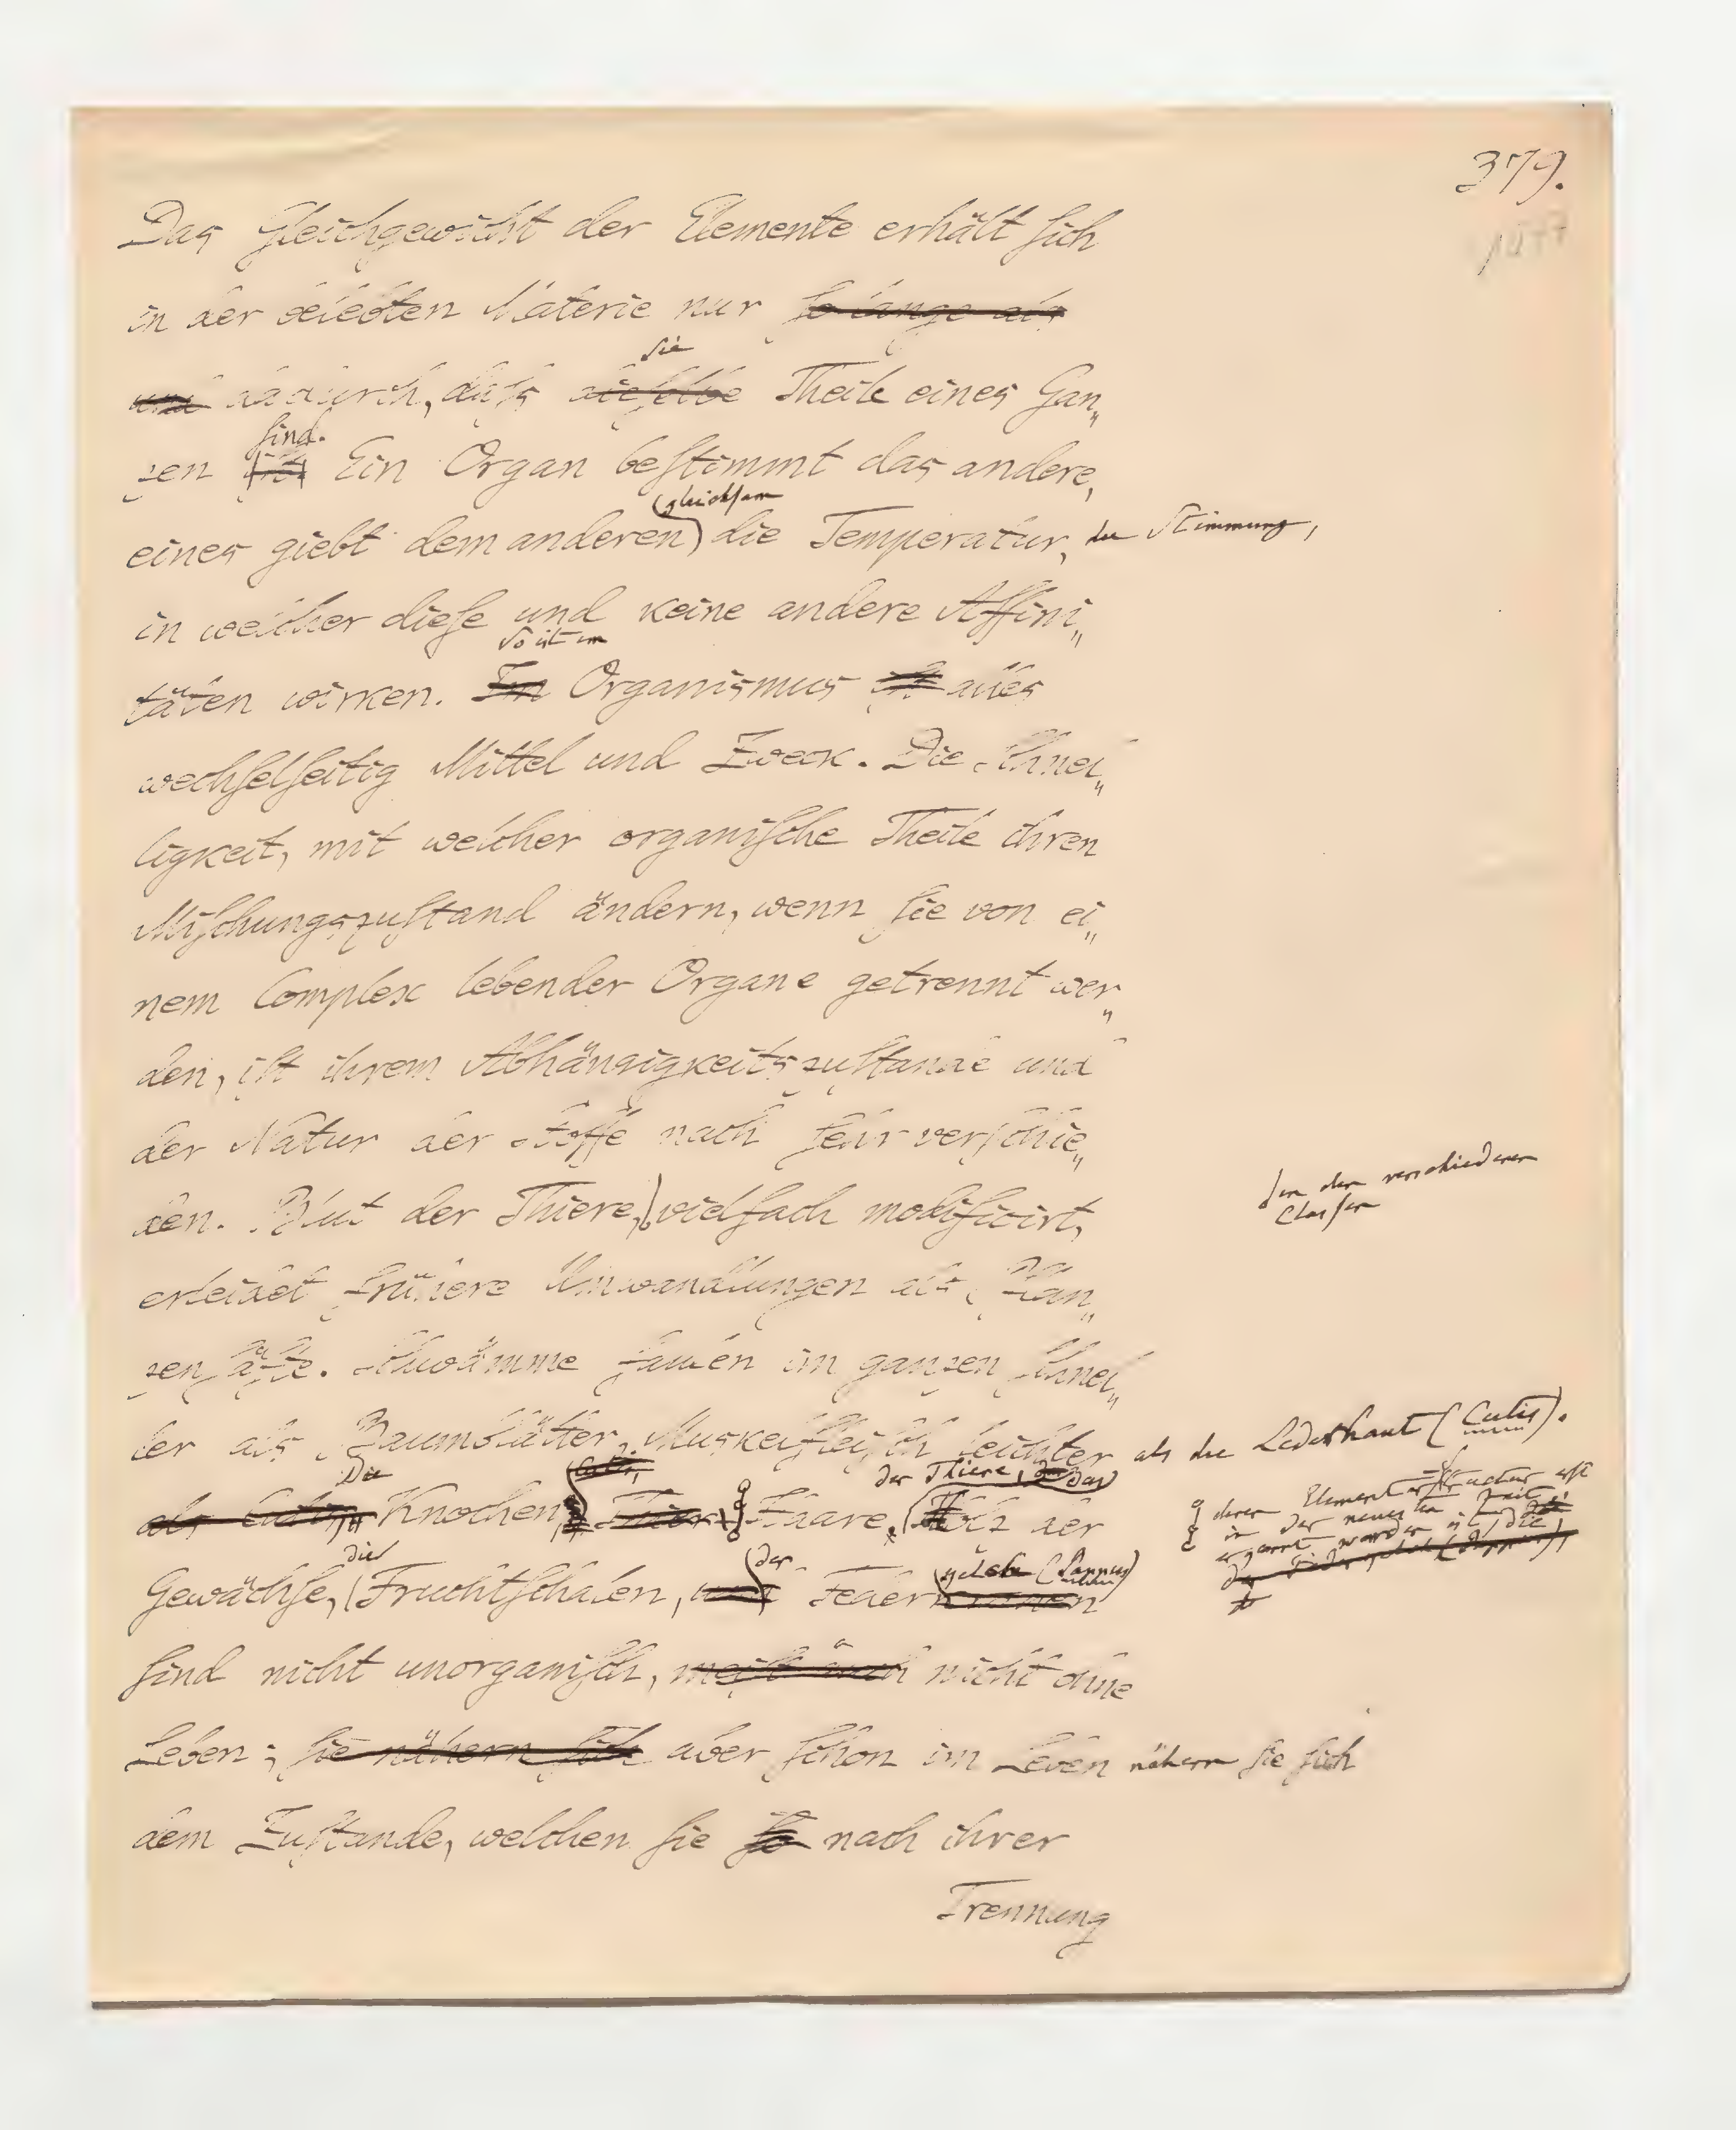 379.
Das Gleichgewicht der Elemente erhält sich
in der belebten Materie nur so lange als
sie
und dadurch, daſs dieselbe Theile eines Gan„
sind.
zen ist Ein Organ bestimmt das andere,
gleichsam
eines giebt dem anderen die Temperatur, die Stimmung,
in welcher diese und keine andere Affini„
So ist im
täten wirken. Im Organismus ist alles
wechselseitig Mittel und Zweck. Die Schnel„
ligkeit, mit welcher organische Theile ihren
Mischungszustand ändern, wenn sie von ei„
nem Complex lebender Organe getrennt wer„
den, ist ihrem Abhängigkeitszustande und
der Natur der Stoffe nach sehr verschie„
in den verschiedenen
Classen
den. Blut der Thiere, vielfach modificirt,
erleidet frühere Umwandlungen als Pflan„
zensäfte. Schwämme faulen im ganzen schnel„
ler als Baumblätter, Muskelfleisch leichter als die Lederhaut (Cutis).
Die der Thiere, das
als Cutis, Knochen, Thier Haare, Holz der
deren Elementarstructur erst
in der neuesten Zeit
erkannt worden ist, die
die der
Gewächse, Fruchtschalen, und Federkronen
gelehr (Pappus)
sind nicht unorganisch, meist auch nicht ohne
Leben; sie nähern sich aber schon im Leben nähern sie sich
dem Zustande, welchen sie so nach ihrer
Trennung